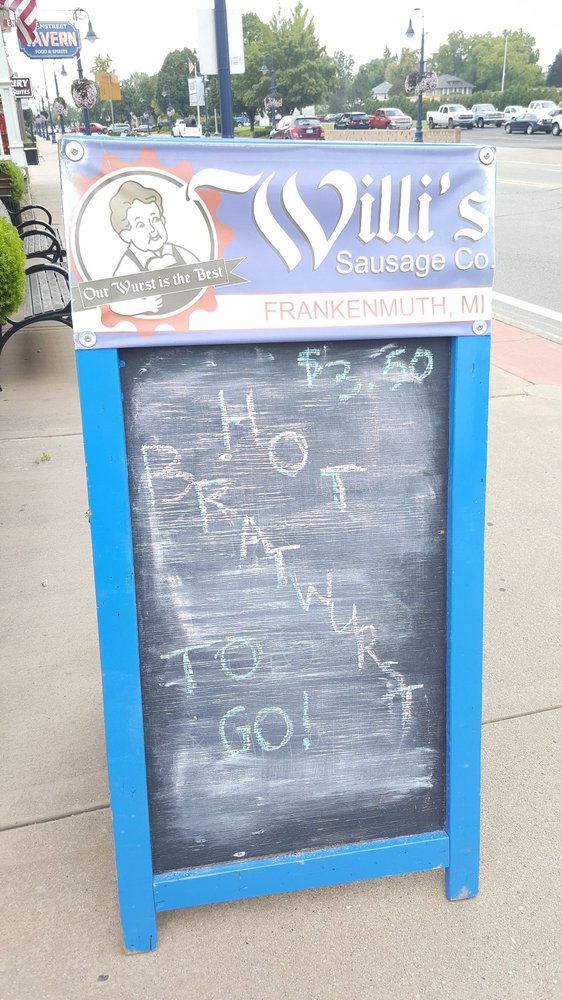 TAVERN
FOOD & SPIRITS
Willi's
Sausage Co.
Our Wurst is the Best
FRANKENMUTH, MI
$3.50
HOT
BRATWURST
TO
GO!